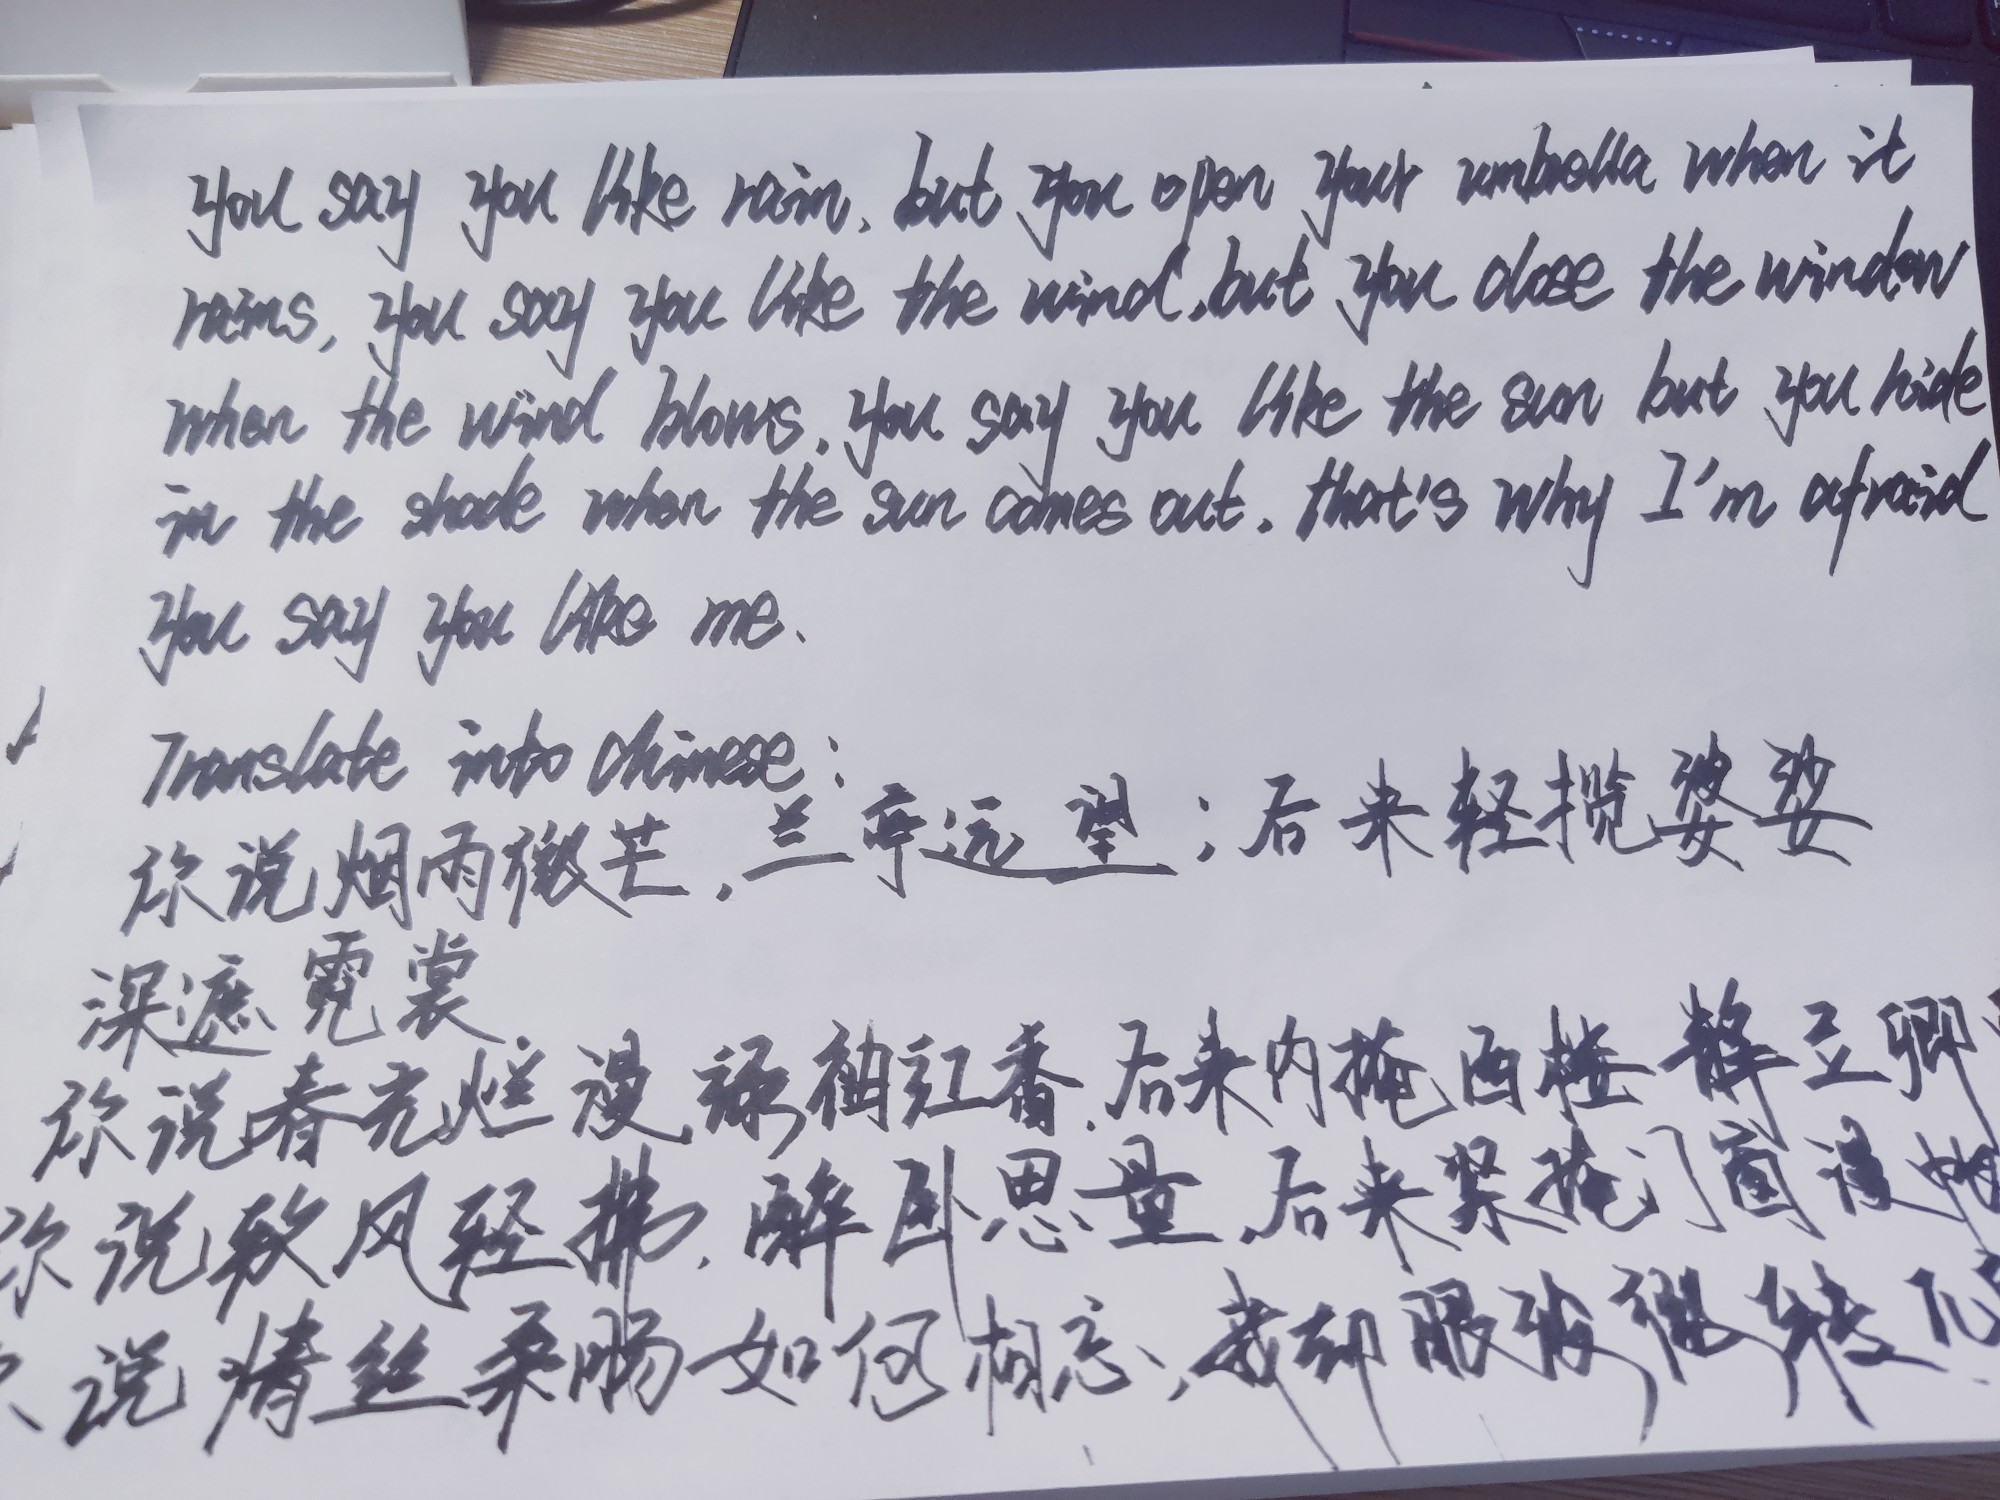 you say you like rain, but you open your umbrella when it
rains, you say you like the wind, but you close the window
when the wind blows, you say you like the sun but you hide
in the shade when the sun comes out. that's why I'm afraid
you say you like me.
Translate into chinese:
你说烟雨微芒,兰亭远望;后来轻揽婆娑
深遮霓裳
你说春光烂漫,绿袖红香,后来内掩西楼静立卿
你说软风轻拂,醉卧思量,后来紧掩门窗漫帐
说情丝柔肠如何相忘,我却眼波微转兀